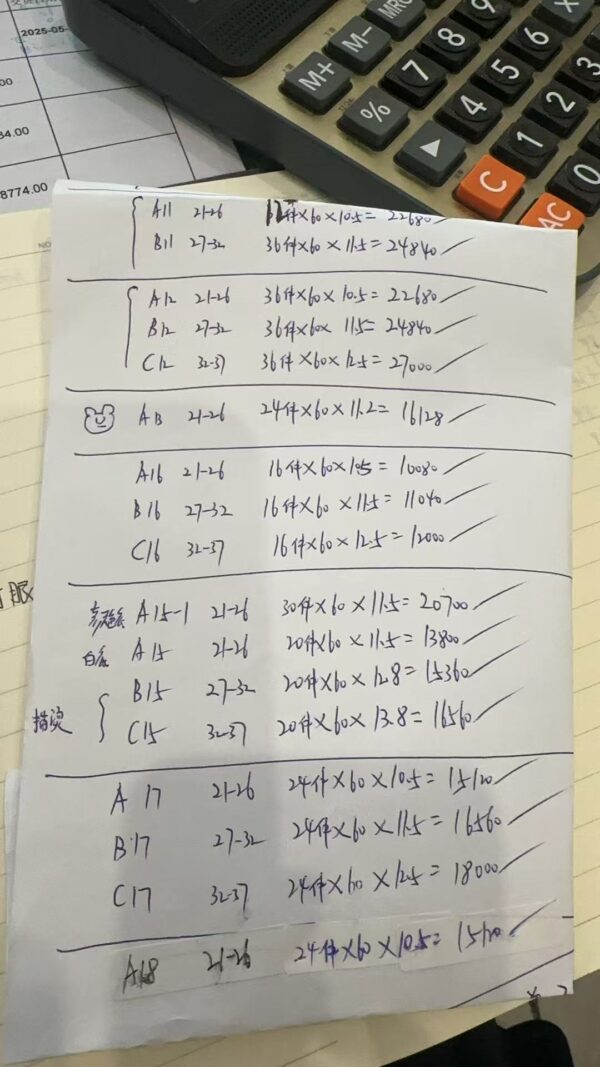 2025-05-
.00
34.00
8774.00
MRC
M-
M+
%
7
8
9
4
5
6
X
▲
1
2
3
C
0
AC
NO
A11 21-26 件×60×10.5=22680
B11 27-32 36件×60×11.5=24840
A12 21-26 36件×60×10.5=22680
B12 27-32 36件×60×11.5=24840
C12 32-37 36件×60×12.5=27000
AB 21-26 24件×60×11.2=16128
A16 21-26 16件×60×10.5=10080
B16 27-32 16件×60×11.5=11040
C16 32-37 16件×60×12.5=12000
A15-1 21-26 30件×60×11.5=20700
白色 A15 21-26 20件×60×11.5=13800
B15 27-32 20件×60×12.8=15360
C15 32-37 20件×60×13.8=16560
A17 21-26 24件×60×10.5=15120
B17 27-32 24件×60×11.5=16560
C17 32-37 24件×60×12.5=18000
A18 21-26 24件×60×10.5=15120
服